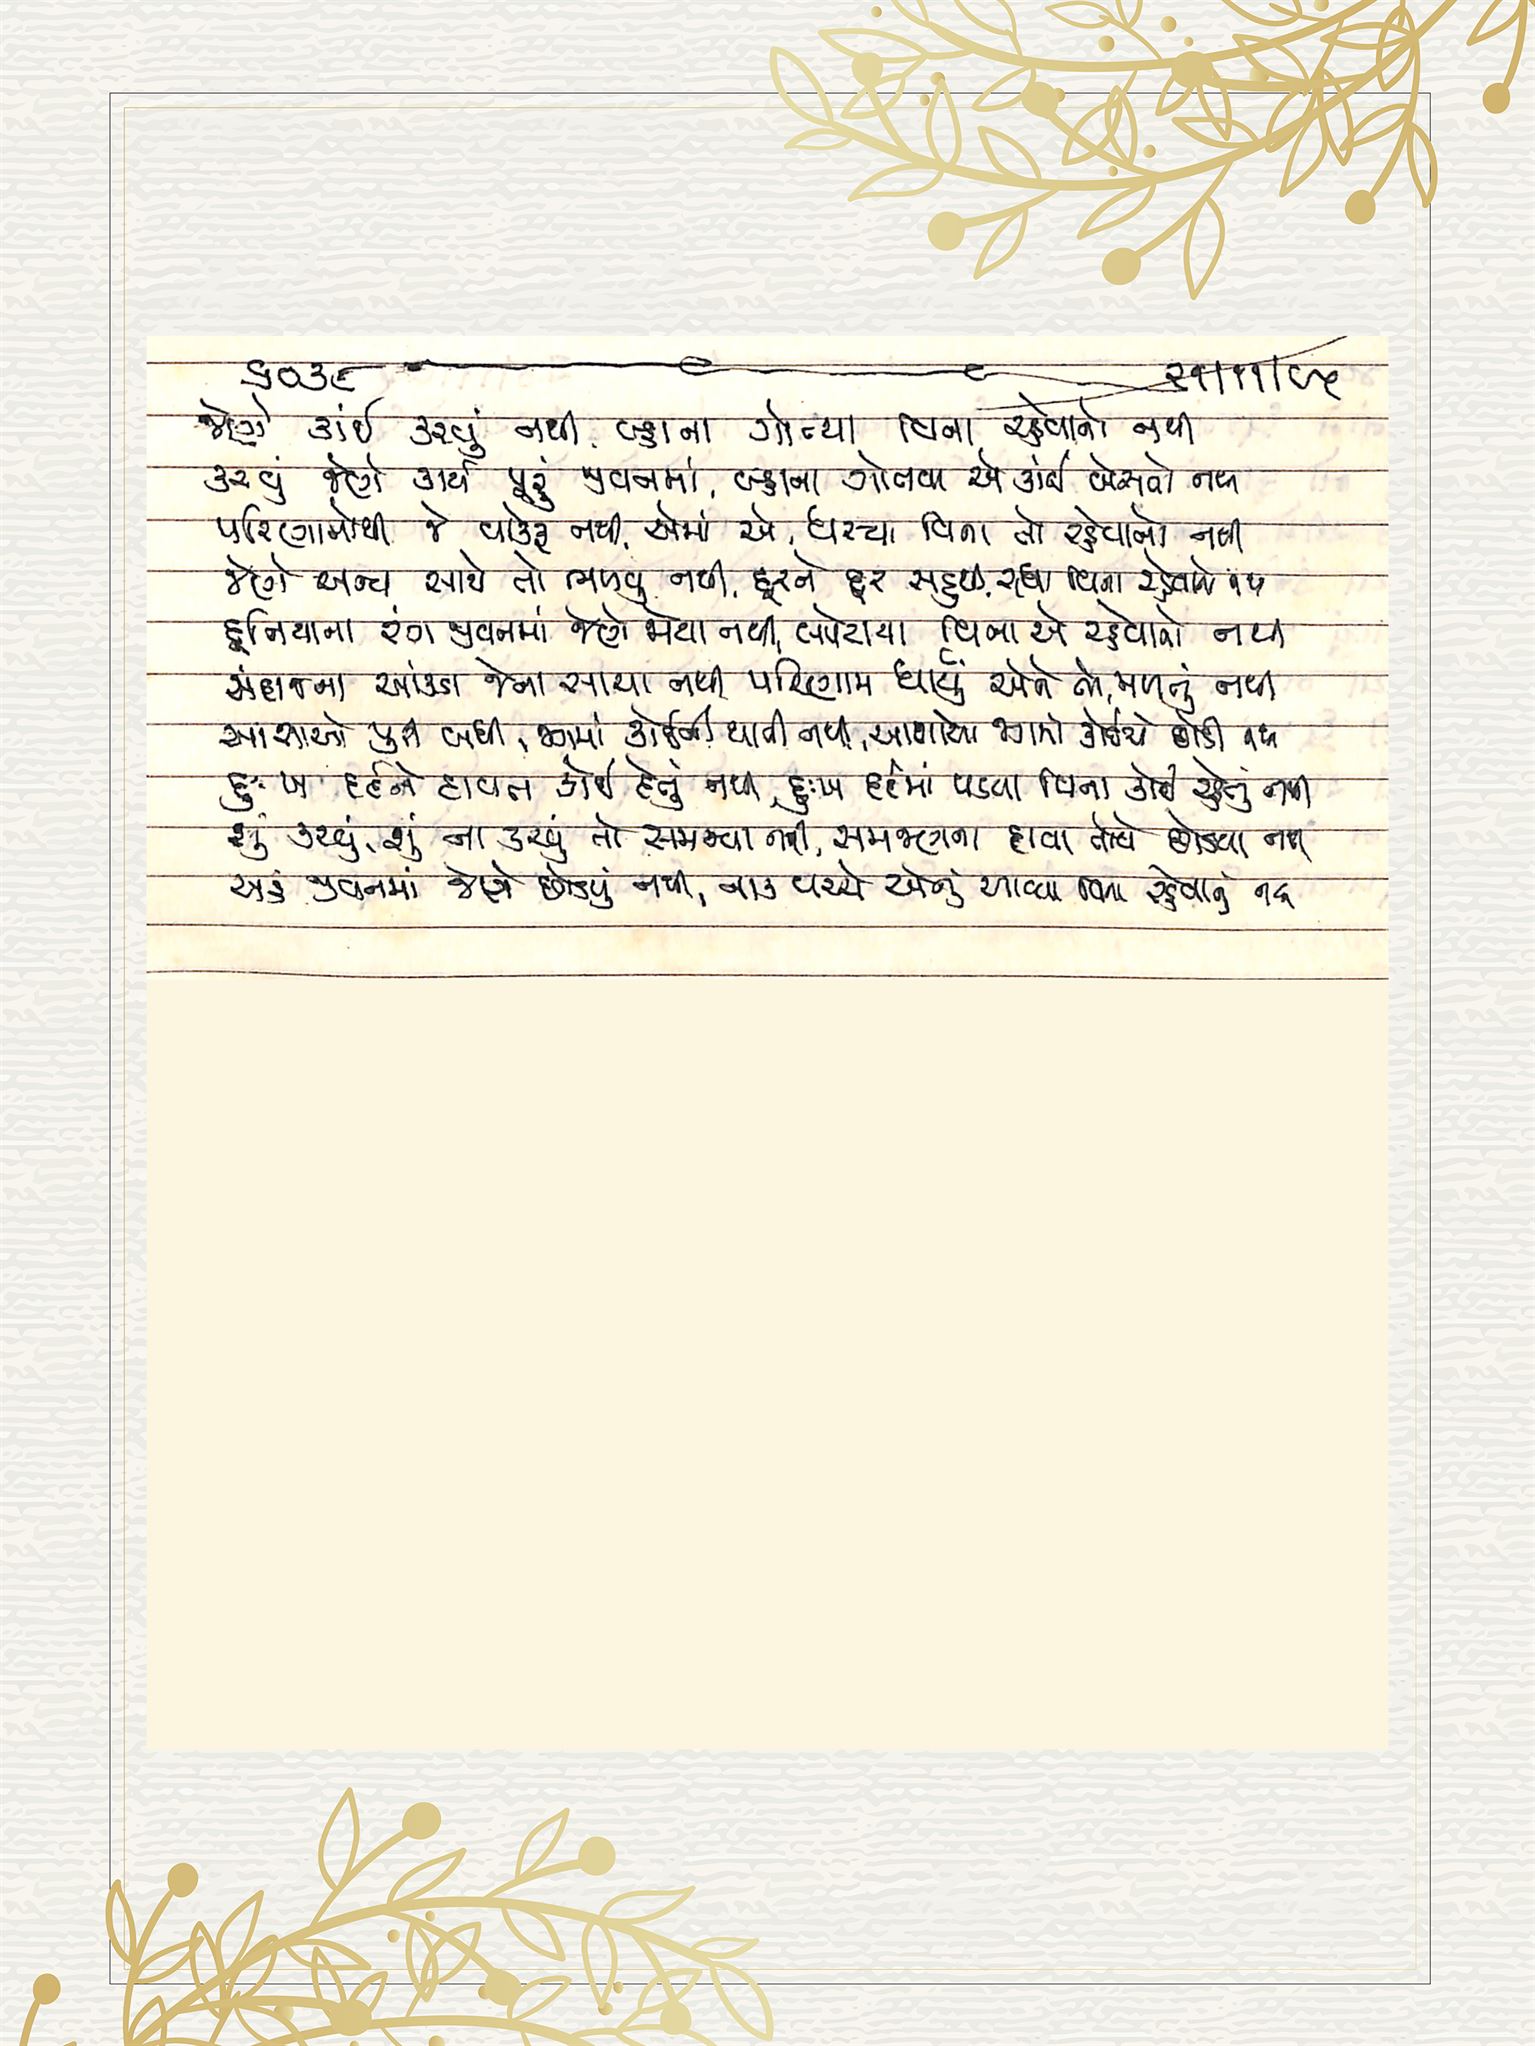 ૬૦૩૯ ૨૧/૧૧/૯૫
જેણે કાંઈ કરવું નથી, બહાના ગોત્યા વિના રહેવાનો નથી
કરવું જેણે કાર્ય પૂરું જીવનમાં, બહાના ગોતવા એ કાંઈ બેસવો નથી
પરિણામોથી જે વાકેફ નથી, એમાં એ, ધસ્યા વિના તો રહેવાનો નથી
જેણે અન્ય સાથે તો ભળવું નથી, દૂરને દૂર સહુથી, રહ્યા વિના રહેવાનો નથી
દુનિયાના રંગ જીવનમાં જેણે જોયા નથી, બધેરાયા વિના એ રહેવાનો નથી
અંદાજના આંકડા જેના સાચા નથી પરિણામ ધાર્યું એને તો, મળતું નથી
આશાઓ પુરી બધી, જગમાં કોઈની થાતી નથી, આશાઓ જગમાં કોઈએ છોડી નથી
દુઃખ દર્દને દાવત કોઈ દેતું નથી, દુઃખ દર્દમાં પડયા વિના કોઈ રહેતું નથી
શું કરવું, શું ના કરવું તો સમજ્યા નથી, સમજણના દાવા તોયે છોડયા નથી
અહં જીવનમાં જેણે છોડયું નથી, નાક વચ્ચે એનું આવ્યા વિના રહેવાનું નથી